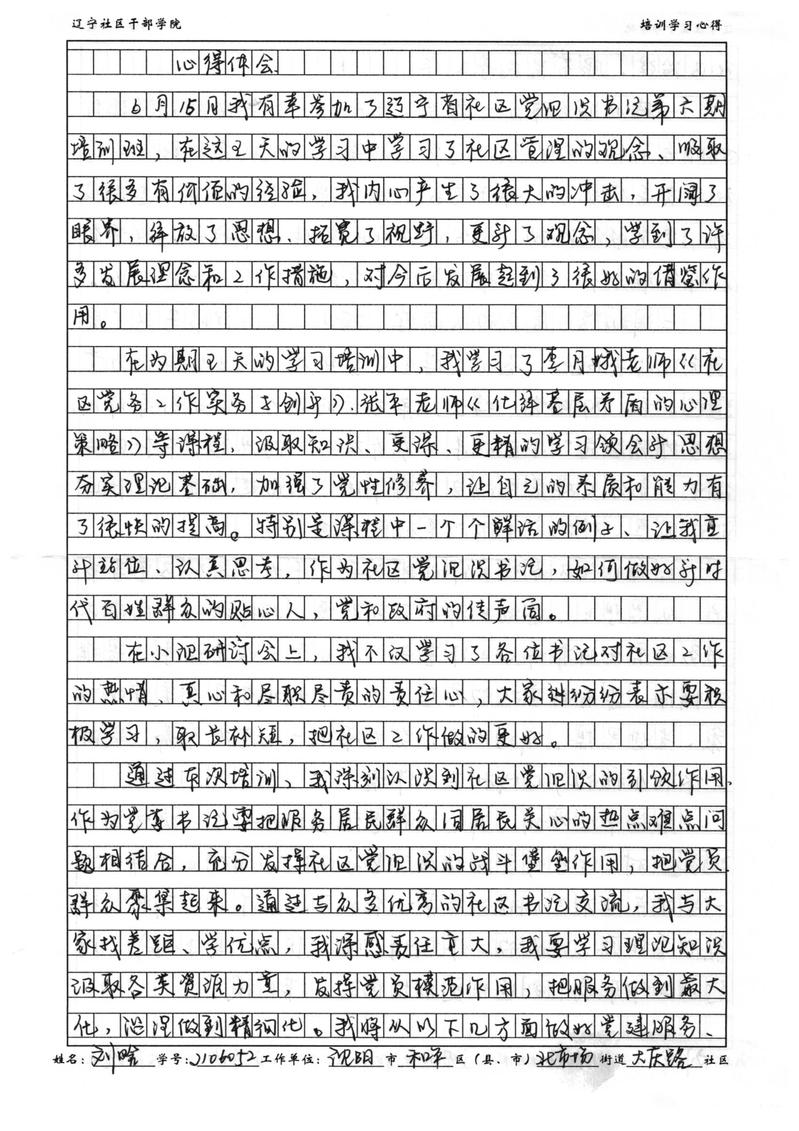 辽宁社区干部学院 培训学习心得
心得体会
6月15日我有幸参加了辽宁省社区党组织书记第六期
培训班，在这五天的学习中学习了社区管理的观念、吸取
了很多有价值的经验，我内心产生了很大的冲击，开阔了
眼界，解放了思想、拓宽了视野，更新了观念，学到了许
多发展理念和工作措施，对今后发展起到了很好的借鉴作
用。
在为期五天的学习培训中，我学习了李月娥老师《社
区党务工作实务与创新》、张军老师《化解基层矛盾的心理
策略》等课程，汲取知识、更深、更精的学习领会新思想
夯实理论基础，加强了党性修养，让自己的素质和能力有
了很快的提高。特别是课程中一个个鲜活的例子、让我变
新站位、认真思考，作为社区党组织书记，如何做好新时
代百姓群众的贴心人，党和政府的传声筒。
在小组研讨会上，我不仅学习了各位书记对社区工作
的热情、真心和尽职尽责的责任心，大家纷纷表示要积
极学习，取长补短，把社区工作做的更好。
通过本次培训、我深刻认识到社区党组织的引领作用，
作为党委书记要把服务居民群众同居民关心的热点难点问
题相结合，充分发挥社区党组织的战斗堡垒作用，把党员
群众聚集起来。通过与众多优秀的社区书记交流，我与大
家找差距、学优点，我深感责任重大，我要学习理论知识
汲取各类资源力量，发挥党员模范作用，把服务做到最大
化，治理做到精细化。我将从以下几方面做好党建服务、
姓名：刘晗 学号：2106052 工作单位：沈阳 市 和平 区（县、市）北市场 街道 大庆路 社区